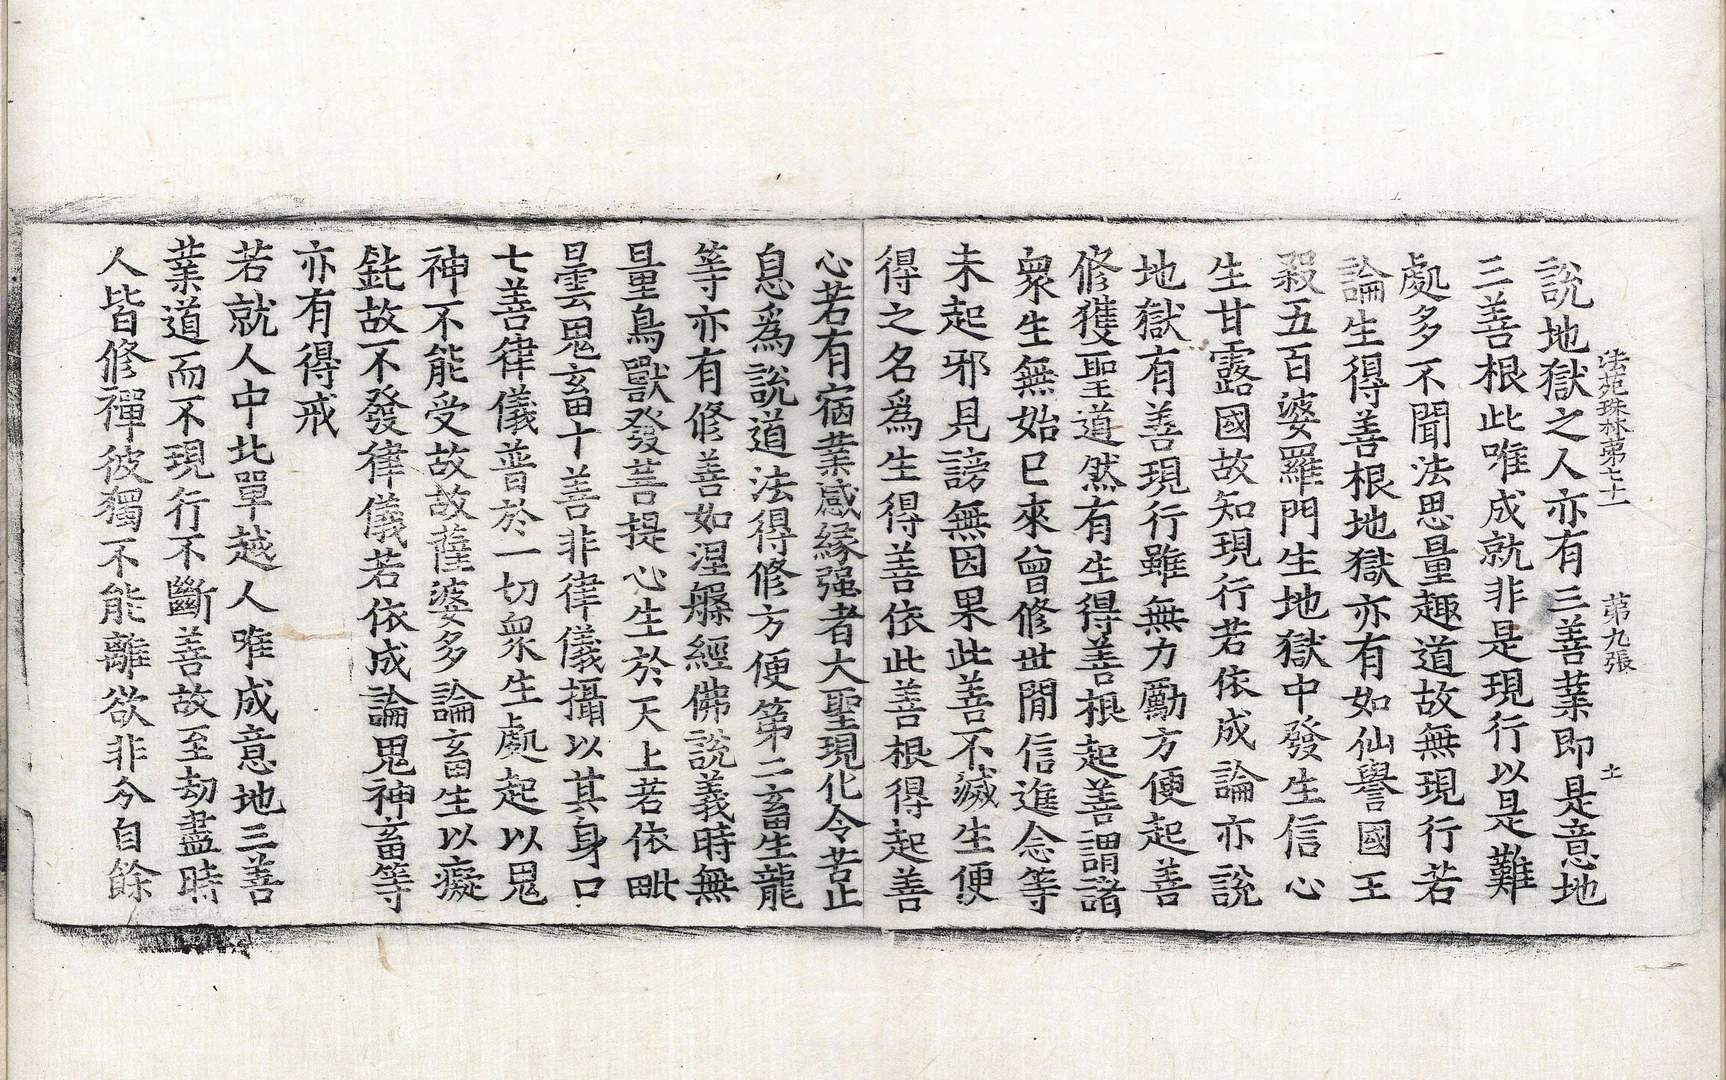 法苑珠林第七十　第九張　土
說地獄之人亦有三善業即是意地
三善根此唯成就非是現行以是難
處多不聞法思量趣道故無現行若
論生得善根地獄亦有如仙譽國王
殺五百婆羅門生地獄中發生信心
生甘露國故知現行若依成論亦說
地獄有善現行雖無力勵方便起善
修獲聖道然有生得善根起善謂諸
衆生無始已來曾修世間信進念等
未起邪見謗無因果此善不滅生便
得之名爲生得善依此善根得起善
心若有宿業感緣强者大聖現化令苦止
息爲說道法得修方便第二畜生龍
等亦有修善如涅槃經佛說義時無
量鳥獸發菩提心生於天上若依毗
曇鬼畜十善非律儀攝以其身口
七善律儀普於一切衆生處起以鬼
神不能受故故薩婆多論畜生以癡
鈍故不發律儀若依成論鬼神畜等
亦有得戒
若就人中北單越人唯成意地三善
業道而不現行不斷善故至劫盡時
人皆修禪彼獨不能離欲非今自餘